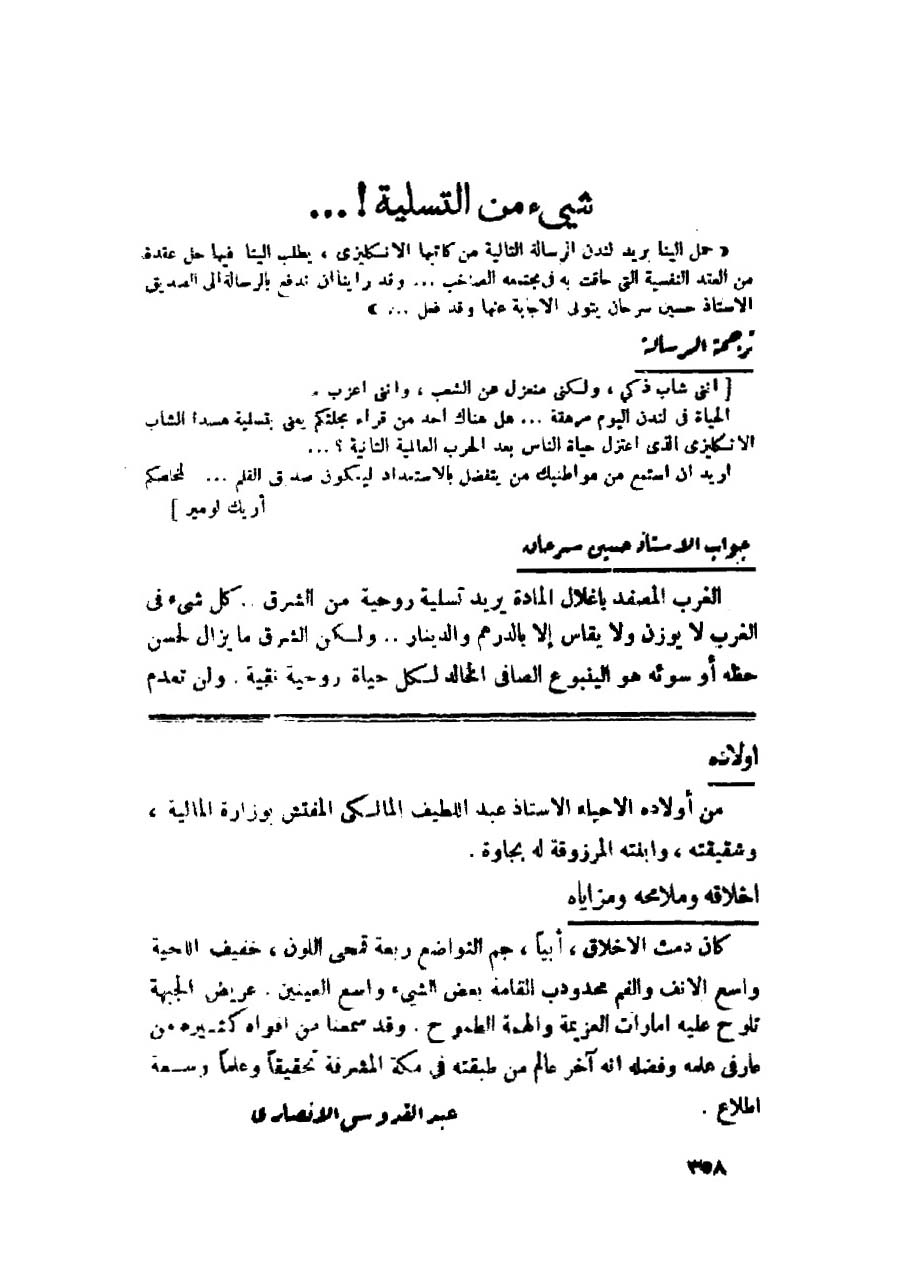 شيء من التسلية ! ...
« حمل الينا بريد لندن الرسالة التالية من كاتبها الانكليزى ، يطلب الينا فيها حل عقدة
من العقد النفسية التى حاقت به فى مجتمعه الصاخب ... وقد رأينا ان ندفع بالرسالة الى الصديق
الاستاذ حسين سرحان يتولى الاجابة عنها وقد فعل ... »
ترجمة الرسالة
[ اننى شاب ذكي ، ولكنى منعزل عن الشعب ، واننى اعزب .
الحياة فى لندن اليوم مرهقة ... هل هناك احد من قراء مجلتكم يعنى بتسلية هسذا الشاب
الانكليزى الذى اعتزل حياة الناس بعد الحرب العالمية الثانية ؟ ...
اريد ان استمع من مواطنيك من يتفضل بالاستعداد ليكون صديق القلم ... لمخاصكم
أريك لومير ]
جواب الاستاذ حسين سرحان
الغرب المصفد باغلال المادة يريد تسلية روحية من الشرق .. كل شىء فى
الغرب لا يوزن ولا يقاس إلا بالدرهم والدينار .. ولكن الشرق ما يزال لحسن
حظه أو سوئه هو الينبوع الصافى الخالد لكل حياة روحية نقية . ولن تعدم
اولاده
من أولاده الاحياء الاستاذ عبد اللطيف المالكى المفتش بوزارة المالية ،
وشقيقته ، وابنته المرزوقة له بجاوة .
اخلاقه وملامحه ومزاياه
كان دمث الاخلاق ، أبياً ، جم التواضع ربعة قمحى اللون ، خفيف اللحية
واسع الانف والفم محدودب القامة بعض الشيء واسع العينين . عريض الجبهة
تلوح عليه امارات العزيمة والهمة الطموح . وقد سمعنا من افواه كثيره من
عارفى علمه وفضله انه آخر عالم من طبقته في مكة المشرفة تحقيقاً وعلماً وسعة
اطلاع .
عبد القدوس الانصارى
٣٥٨